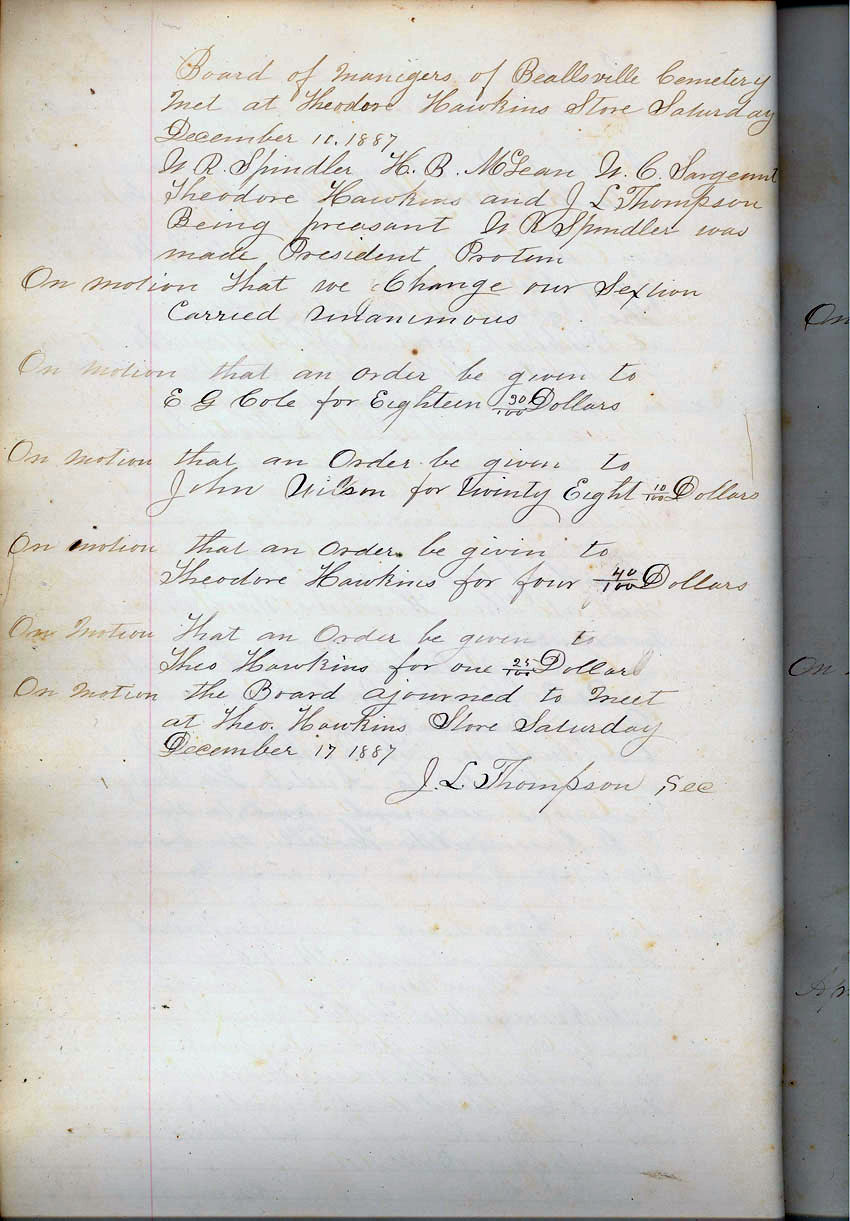 Board of Manigers of Beallsville Cemetery
Met at Theodore Hawkins Store Saturday
December 10. 1887
W R. Spindler H. B. McLean W. C. Sargeant
Theodore Hawkins and J L Thompson
Being preasant W R Spindler was
made President Protem
On motion that we Change our Sextion
Carried Unanimous
On motion that an order be given to
E G Cole for Eighteen 90/100 Dollars
On motion that an Order be given to
John Wilson for Twinty Eight 10/100 Dollars
On motion that an Order be givin to
Theodore Hawkins for four 40/100 Dollars
On Motion That an Order be given to
Theo Hawkins for one 25/100 Dollars
On Motion the Board ajourned to Meet
at Theo. Hawkins Store Saturday
December 17 1887
J L Thompson Sec
On
On
Ap